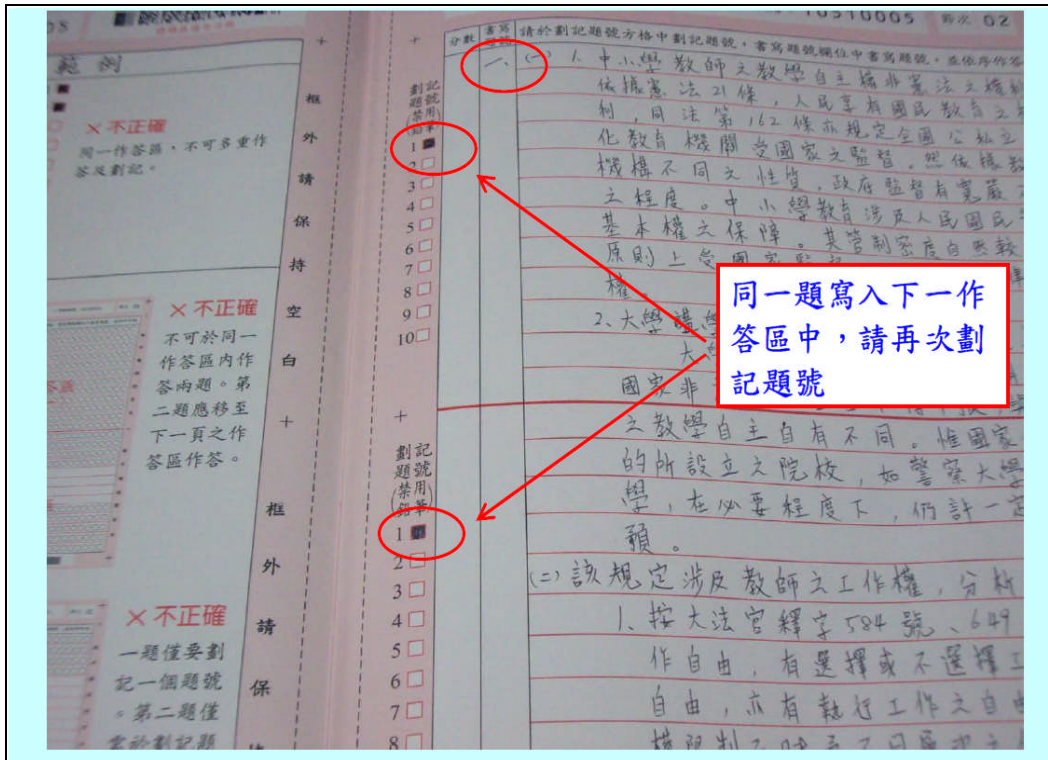 10510005 節次 02
範例
× 不正確
同一作答區，不可多重作
答及劃記。
× 不正確
不可於同一
作答區內作
答兩題。第
二題應移至
下一頁之作
答區作答。
× 不正確
一題僅要劃
記一個題號
。第二題僅
+
框
外
請
保
持
空
白
+
框
外
請
保
+
劃記
題號
禁用
(鉛筆)
1
2
3
4
5
6
7
8
9
10
+
劃記
題號
禁用
(鉛筆)
1
2
3
4
5
6
7
8
分數
書寫
題號
請於劃記題號方格中劃記題號，書寫題號欄位中書寫題號，並依序作答
一、
(一) 1. 中小學教師之教學自主權非憲法之權利
依據憲法21條，人民享有國民教育之
利，同法第162條亦規定全國公私立
化教育機關受國家之監督。然依據教
機構不同之性質，政府監督有寬嚴
之程度。中小學教育涉及人民國民
基本權之保障。其管制密度自然較
原則上受國家監
權
2、大學
大
國家非
之教學自主自有不同。惟國家
的所設立之院校，如警察大學
學，在必要程度下，仍許一定
預。
(二) 該規定涉及教師之工作權，分析
1、按大法官釋字584號、649
作自由，有選擇或不選擇工
自由，亦有執行工作之自由
同一題寫入下一作
答區中，請再次劃
記題號